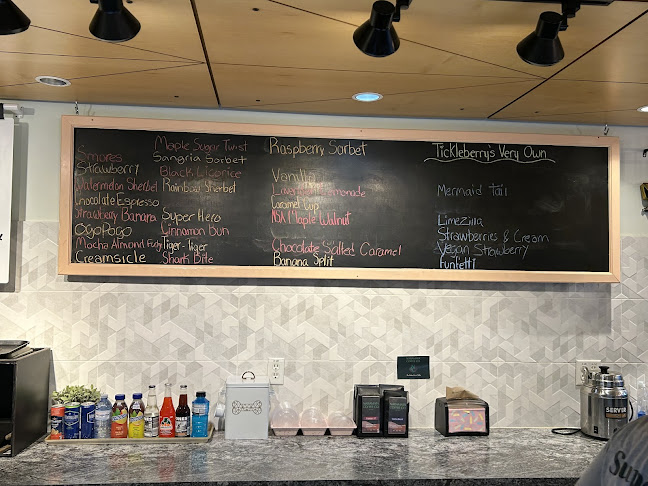 Smores
Strawberry
Watermelon Sherbet
Chocolate Espresso
Strawberry Banana
OgoPogo
Mocha Almond Fudg
Creamsicle
Maple Sugar Twist
Sangria Sorbet
Black Licorice
Rainbow Sherbet
Super Hero
Cinnamon Bun
Tiger-Tiger
Shark Bite
Raspberry Sorbet
Vanilla
Lavender Lemonade
Caramel Cup
NSA Maple Walnut
Chocolate Salted Caramel
Banana Split
Tickleberry's Very Own
Mermaid Tail
Limezilla
Strawberries & Cream
Vegan Strawberry
Funfetti
SERVER